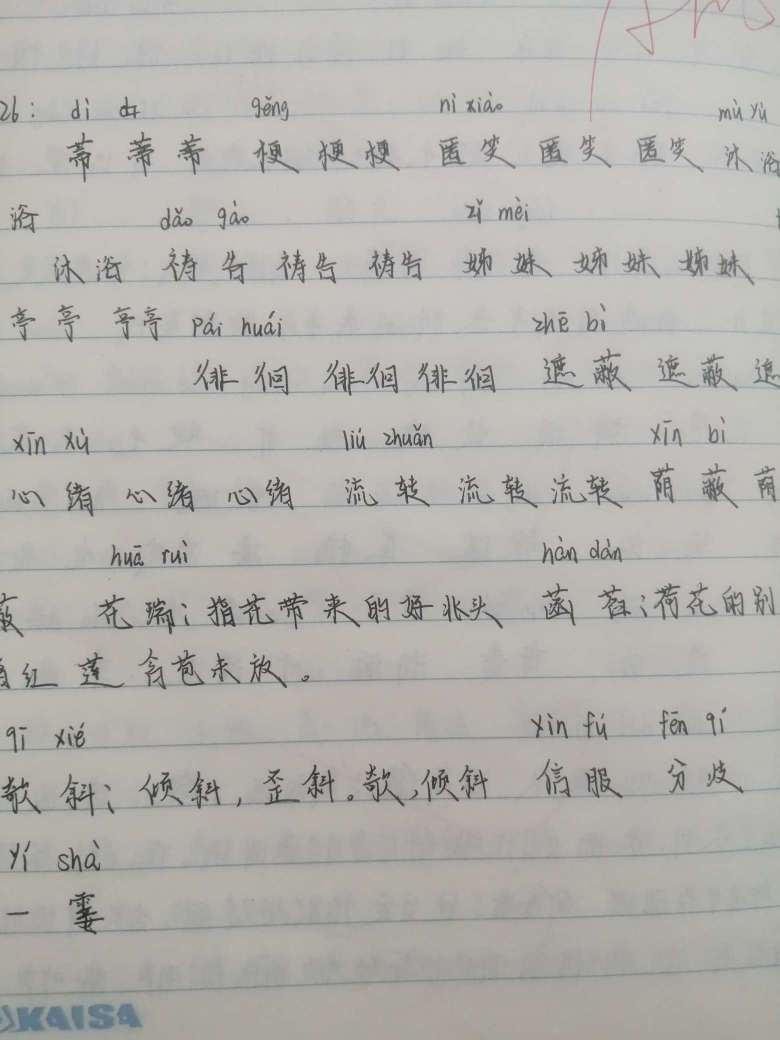 26: dì gěng nì xiào mù yù
蒂 蒂 蒂 梗 梗 梗 匿笑 匿笑 匿笑 沐浴
浴 dǎo gào zǐ mèi
沐浴 祷告 祷告 祷告 姊妹 姊妹 姊妹
亭亭 亭亭 pái huái zhē bì
徘徊 徘徊 徘徊 遮蔽 遮蔽 遮
xīn xù liú zhuǎn xīn bì
心绪 心绪 心绪 流转 流转 流转 荫蔽 荫
huā ruì hàn dàn
蔽 花瑞：指花带来的好兆头 菡萏：荷花的别
红莲含苞未放。
qī xié xìn fú fēn qí
欹斜：倾斜，歪斜。欹，倾斜 信服 分歧
yí shà
一霎
KAISA